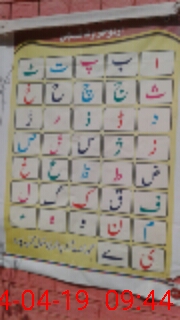 ا ب پ ت ٹ
ث ج چ ح خ
د ڈ ذ ر ڑ
ز ژ س ش ص
ض ط ظ ع غ
ف ق ک گ ل
م ن و ہ ء
ی ے
4-04-19 09:44